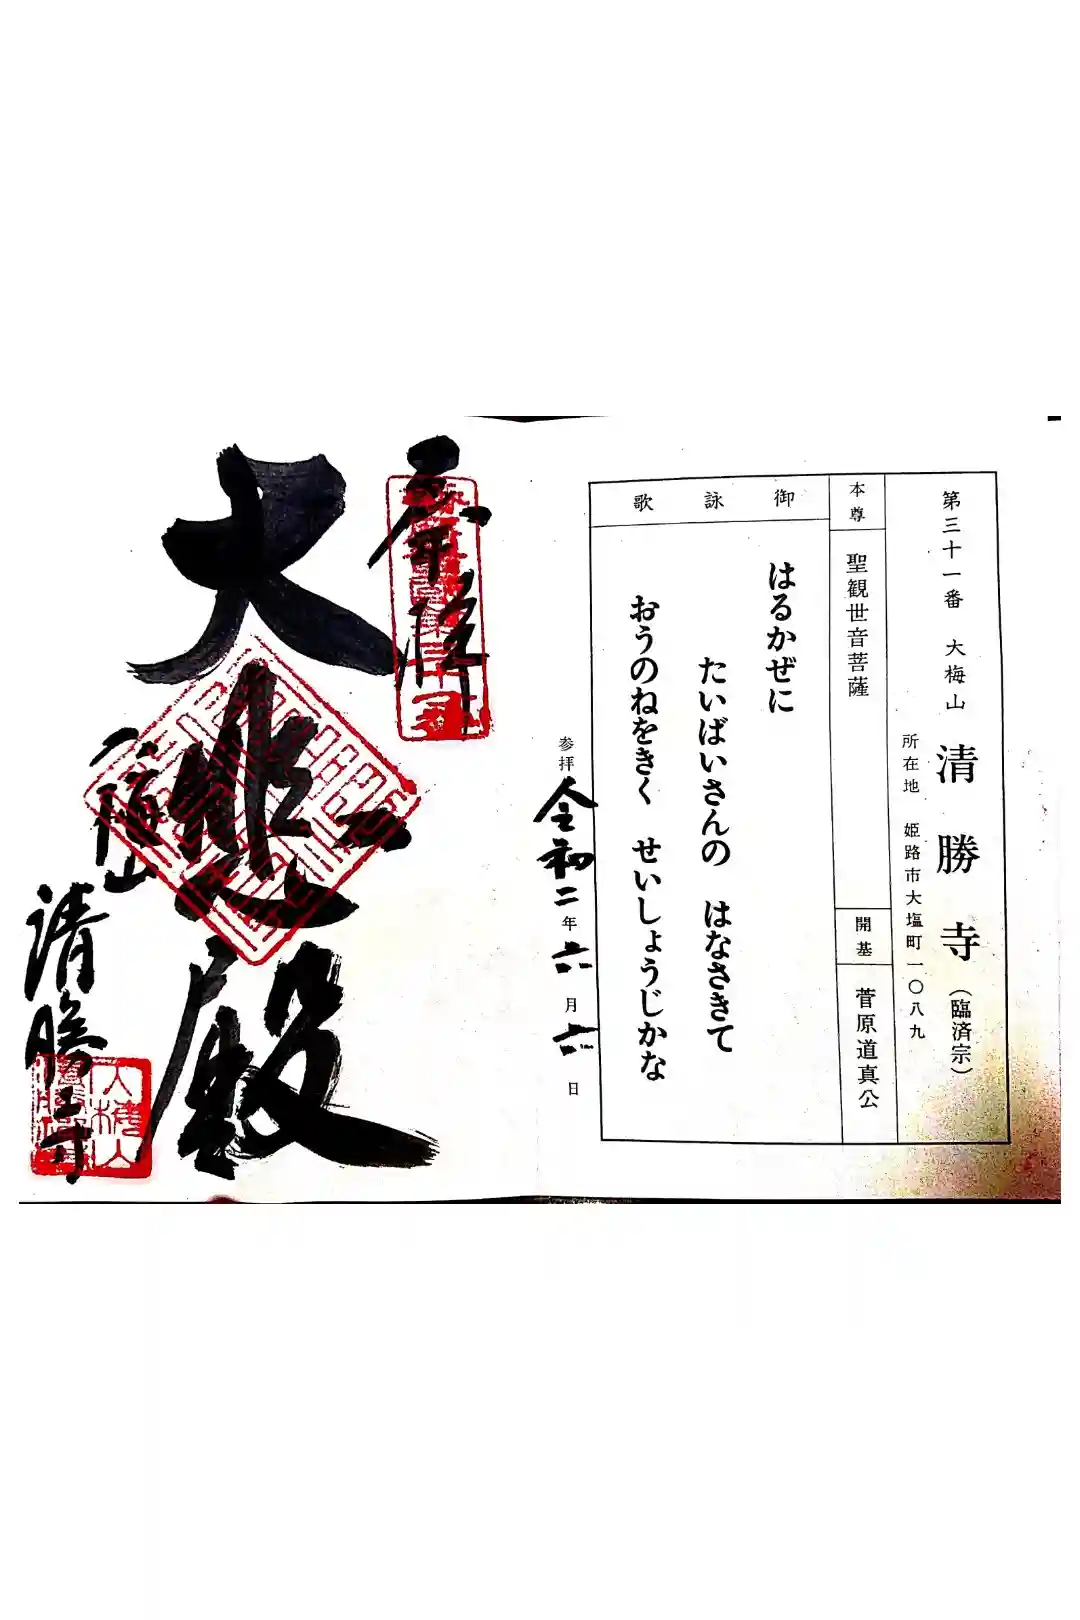 第三十一番　大梅山　清勝寺（臨済宗）
所在地　姫路市大塩町一〇八九
本尊　聖観世音菩薩
開基　菅原道真公
御詠歌
はるかぜに
たいばいさんの　はなさきて
おうのねをきく　せいしょうじかな
参拝　令和二年六月六日
奉拝
大悲殿
大梅山
清勝寺
大梅山